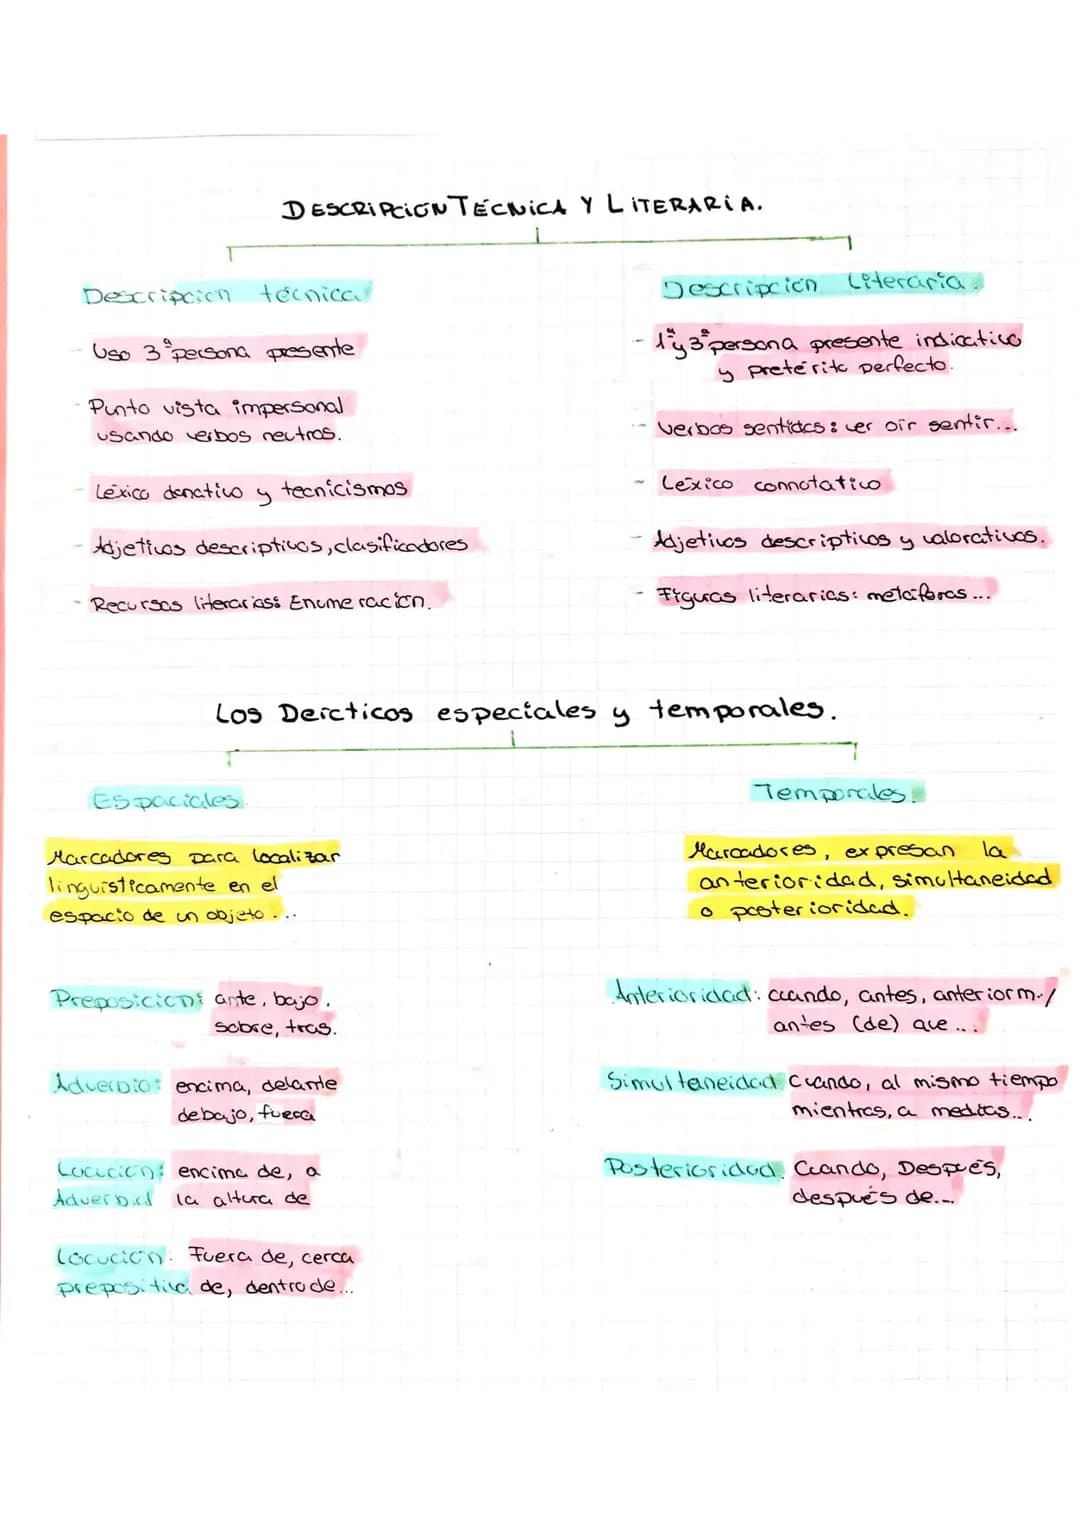 DESCRIPCIÓN TÉCNICA Y LITERARIA.
Descripción técnica
- Uso 3ª persona presente
- Punto vista impersonal
usando verbos neutros.
- Léxico denotivo y tecnicismos
- Adjetivos descriptivos, clasificadores
- Recursos literarios: Enumeración.
Descripción Literaria.
- 1ª y 3ª persona presente indicativo
y pretérito perfecto.
- Verbos sentidos: ver oír sentir...
- Léxico connotativo
- Adjetivos descriptivos y valorativos.
- Figuras literarias: metáforas...
Los Deícticos especiales y temporales.
Espaciales
Marcadores para localizar
linguísticamente en el
espacio de un objeto...
Preposición: ante, bajo,
sobre, tras.
Adverbio: encima, delante
debajo, fuera
Locución: encima de, a
Adverbial la altura de
Locución: Fuera de, cerca
prepositiva de, dentro de...
Temporales.
Marcadores, expresan la
anterioridad, simultaneidad
o posterioridad.
Anterioridad: cuando, antes, anteriorm./
antes (de) que...
Simultaneidad Cuando, al mismo tiempo
mientras, a medidas...
Posterioridad. Cuando, Después,
después de...